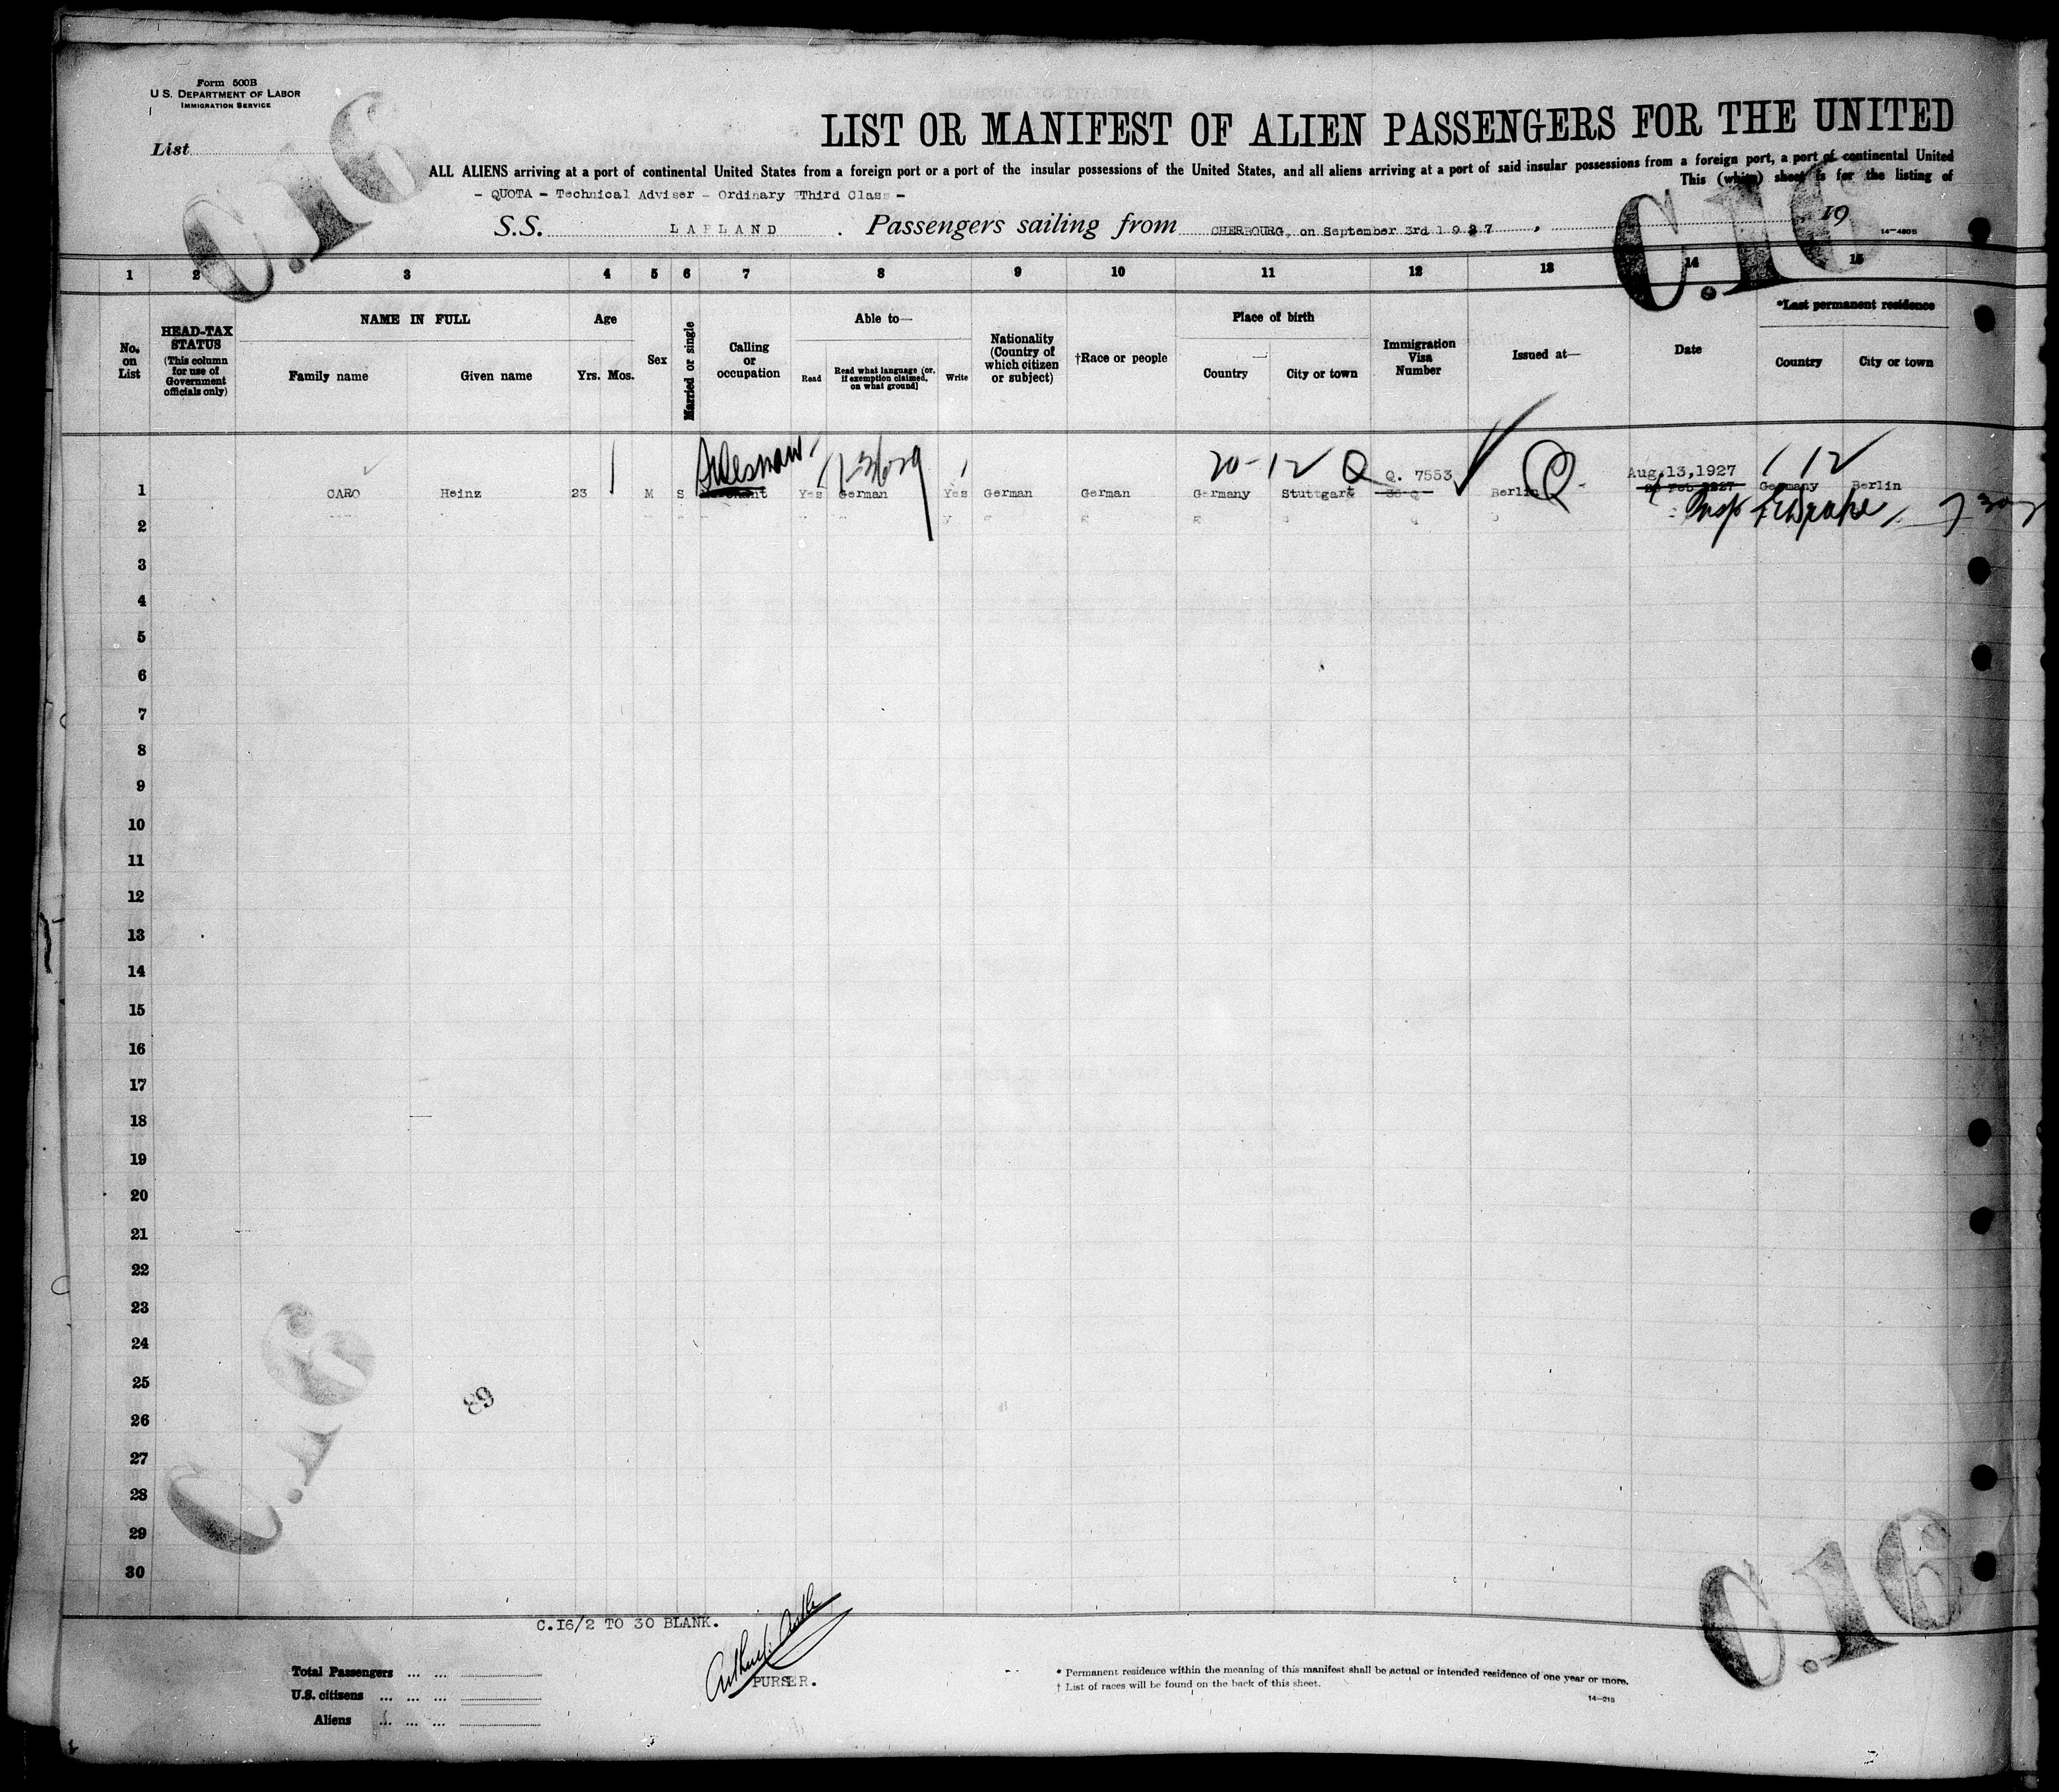 Form 500B
U.S. DEPARTMENT OF LABOR
IMMIGRATION SERVICE
List
C.16
LIST OR MANIFEST OF ALIEN PASSENGERS FOR THE UNITED
ALL ALIENS arriving at a port of continental United States from a foreign port or a port of the insular possessions of the United States, and all aliens arriving at a port of said insular possessions from a foreign port, a port of continental United
This (white) sheet is for the listing of
- QUOTA - Technical Adviser - Ordinary Third Class -
S.S. LAPLAND . Passengers sailing from CHERBOURG, on September 3rd 1927 , 19
C.16
1 2 3 4 5 6 7 8 9 10 11 12 13 14 15
No. on List
HEAD-TAX STATUS (This column for use of Government officials only)
NAME IN FULL
Family name Given name
Age
Yrs. Mos.
Sex
Married or single
Calling or occupation
Able to—
Read
Read what language [or, if exemption claimed, on what ground]
Write
Nationality (Country of which citizen or subject)
†Race or people
Place of birth
Country City or town
Immigration Visa Number
Issued at—
Date
*Last permanent residence
Country City or town
Salesman 20-12 Q Q. 7553 Q Aug.13,1927 12
1 CARO Heinz 23 M S Merchant Yes German Yes German German Germany Stuttgart 36 Q Berlin 26 Feb 1927 Germany Berlin
2
3
4
5
6
7
8
9
10
11
12
13
14
15
16
17
18
19
20
21
22
23
24
25
26
27
28
29
30
C.16
89
C.16
C.16/2 TO 30 BLANK.
PURSER.
Total Passengers ... ...
U.S. citizens ... ... ...
Aliens ... ... ...
* Permanent residence within the meaning of this manifest shall be actual or intended residence of one year or more.
† List of races will be found on the back of this sheet.
14-213